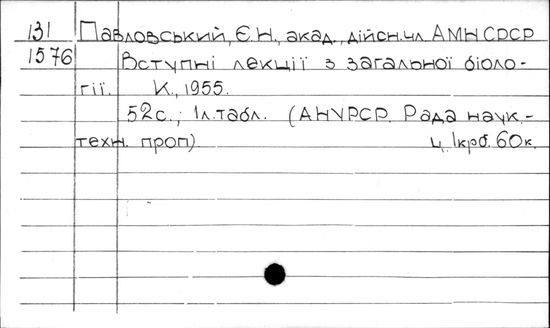 131 Павловський, Є.Н., акад., дійсн.чл. АМН СРСР
1576 Вступні лекції з загальної біоло-
гії. К., 1955.
52с.; 1л.табл. (АНУРСР. Рада наук.-
техн. проп) ц. 1крб. 60к.